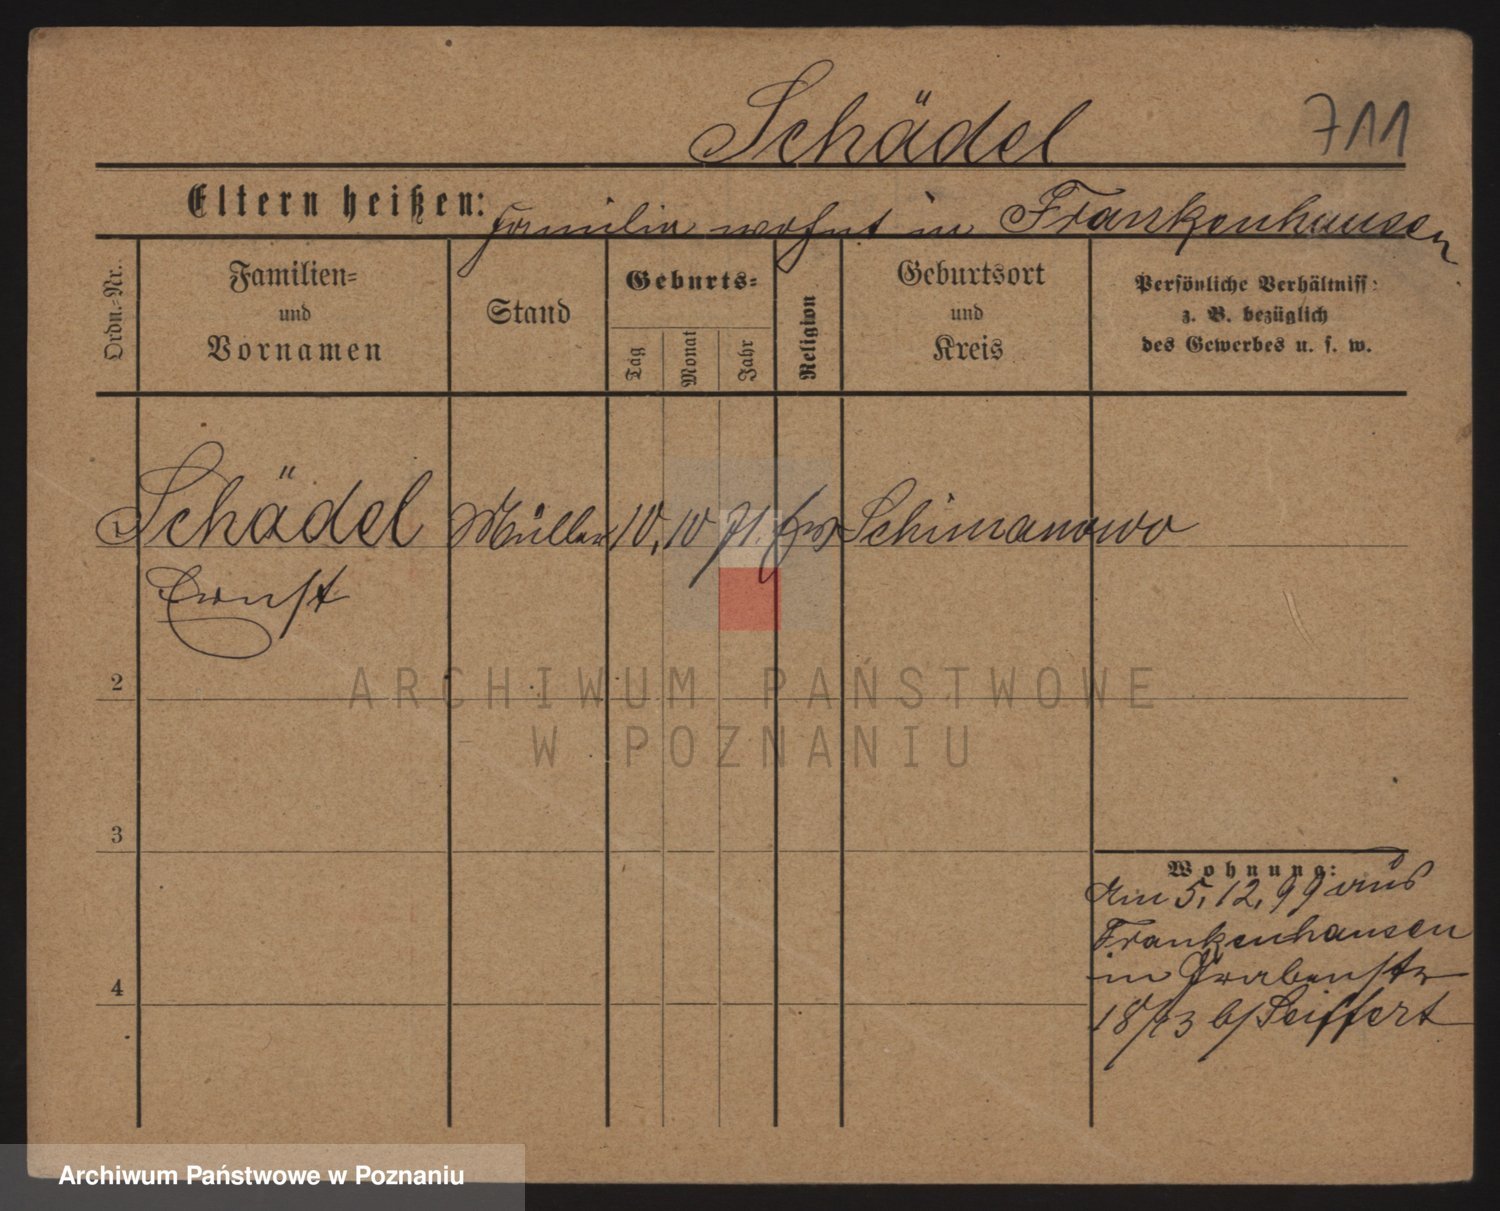 Schädel 711
Eltern heißen: Familie wohnt in Frankenhausen
Ordn.-Nr.
Familien-
und
Vornamen
Stand
Geburts-
Tag
Monat
Jahr
Religion
Geburtsort
und
Kreis
Persönliche Verhältniss:
z. B. bezüglich
des Gewerbes u. s. w.
Schädel Müller 10. 10 71. Schimanowo
Ernst
2
ARCHIWUM PAŃSTWOWE
W POZNANIU
3
Wohnung:
Am 5. 12. 99 aus
Frankenhausen
4
in Grabenstr
18/23 b/Seiffert
Archiwum Państwowe w Poznaniu